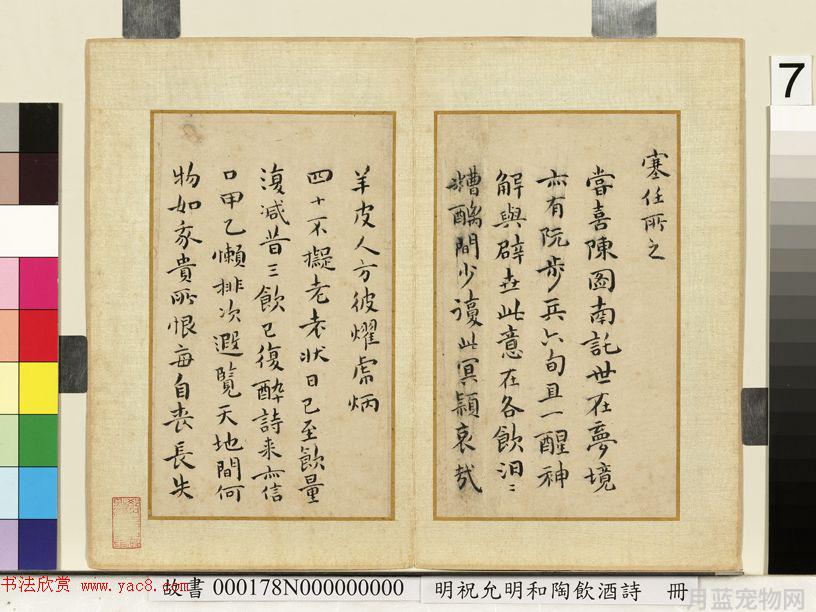 塞任所之
當喜陳圖南託世在夢境
亦有阮步兵六旬且一醒神
解與辟世此意在各飲汩〻
醩醨間少復此冥穎哀哉
羊皮人方彼燿虎炳
四十不擬老老狀日已至飲量
復减昔三飲已復醉詩来亦信
口甲乙懶排次遐覽天地間何
物如家貴所恨每自喪長失
7
书法欣赏 www.yac8.com
故書 000178N000000000
明祝允明和陶飲酒詩 冊
月蓝宠物网